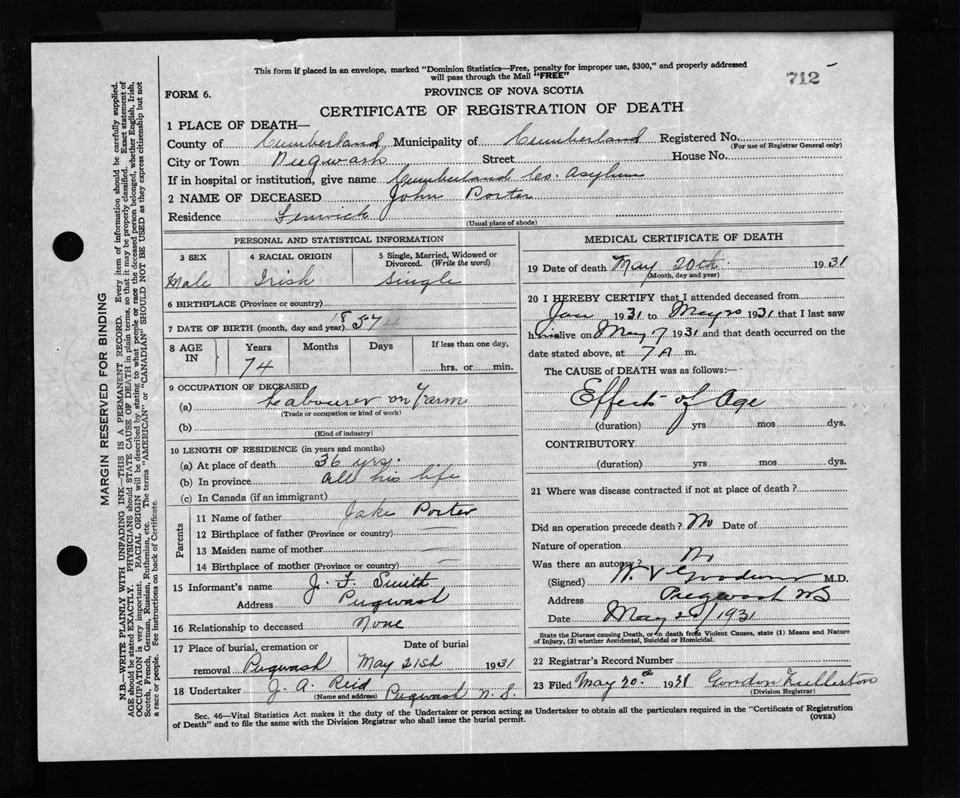 This form if placed in an envelope, marked "Dominion Statistics—Free, penalty for improper use, $300," and properly addressed
will pass through the Mail "FREE"
712
FORM 6.
PROVINCE OF NOVA SCOTIA
CERTIFICATE OF REGISTRATION OF DEATH
MARGIN RESERVED FOR BINDING
N.B.—WRITE PLAINLY WITH UNFADING INK—THIS IS A PERMANENT RECORD. Every item of information should be carefully supplied.
AGE should be stated EXACTLY. PHYSICIANS should STATE CAUSE OF DEATH in plain terms, so that it may be properly classified. Exact statement of
OCCUPATION is very important. RACIAL ORIGIN will be described by stating to what people or race the deceased person belonged, whether English, Irish,
Scotch, French, German, Russian, Ruthenian, etc. The terms "AMERICAN" or "CANADIAN" SHOULD NOT BE USED as they express citizenship but not
a race or people. See instructions on back of Certificate.
1 PLACE OF DEATH—
County of Cumberland Municipality of Cumberland Registered No.
(For use of Registrar General only)
City or Town Pugwash Street House No.
If in hospital or institution, give name Cumberland Co. Asylum
2 NAME OF DECEASED John Porter
Residence Fenwick
(Usual place of abode)
PERSONAL AND STATISTICAL INFORMATION
3 SEX 4 RACIAL ORIGIN 5 Single, Married, Widowed or
Divorced. (Write the word)
Male Irish Single
6 BIRTHPLACE (Province or country)
7 DATE OF BIRTH (month, day and year) 1857
8 AGE IN Years Months Days If less than one day,
74 hrs. or min.
9 OCCUPATION OF DECEASED
(a) Labourer on Farm
(Trade or occupation or kind of work)
(b)
(Kind of industry)
10 LENGTH OF RESIDENCE (in years and months)
(a) At place of death 36 yrs.
(b) In province All his life
(c) In Canada (if an immigrant)
Parents
11 Name of father Jake Porter
12 Birthplace of father (Province or country)
13 Maiden name of mother
14 Birthplace of mother (Province or country)
15 Informant's name J. F. Smith
Address Pugwash
16 Relationship to deceased None
17 Place of burial, cremation or Date of burial
removal Pugwash May 21st 1931
18 Undertaker J. A. Reid Pugwash N. S.
(Name and address)
MEDICAL CERTIFICATE OF DEATH
19 Date of death May 20th 1931
(Month, day and year)
20 I HEREBY CERTIFY that I attended deceased from
Jan 1931 to May 20 1931 that I last saw
him alive on May 7 1931 and that death occurred on the
date stated above, at 7 A m.
The CAUSE of DEATH was as follows:—
Effects of Age
(duration) yrs mos dys.
CONTRIBUTORY
(duration) yrs mos dys.
21 Where was disease contracted if not at place of death?
Did an operation precede death? No Date of
Nature of operation
Was there an autopsy? No
(Signed) M.D.
Address Pugwash NS
Date May 20/1931
State the Disease causing Death, or in death from Violent Causes, state (1) Means and Nature
of Injury, (2) whether Accidental, Suicidal or Homicidal.
22 Registrar's Record Number
23 Filed May 20th 1931 Gordon
(Division Registrar)
Sec. 46—Vital Statistics Act makes it the duty of the Undertaker or person acting as Undertaker to obtain all the particulars required in the "Certificate of Registration
of Death" and to file the same with the Division Registrar who shall issue the burial permit.
(OVER)